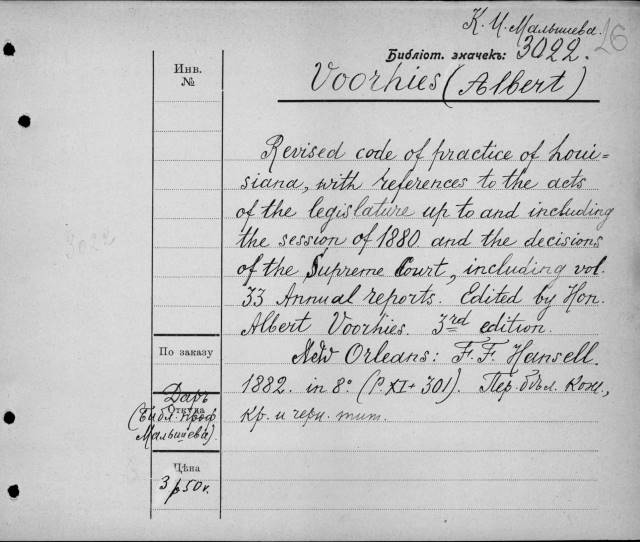 К. И. Малышева.
26
Библіот. значекъ: 3022.
Инв.
№
Voorhies (Albert)
Revised code of practice of Loui=
siana, with references to the acts
of the legislature up to and including
3022
the session of 1880 and the decisions
of the Supreme Court, including vol.
33 Annual reports. Edited by Hon.
Albert Voorhies. 3rd edition.
По заказу
New Orleans: F. F. Hansell.
1882. in 8° (P. XI + 301). Пер. бѣл. кож.,
Даръ
Откуда
(Библ. проф.
кр. и черн. тит.
Малышева).
Цѣна
3 р 50 к.